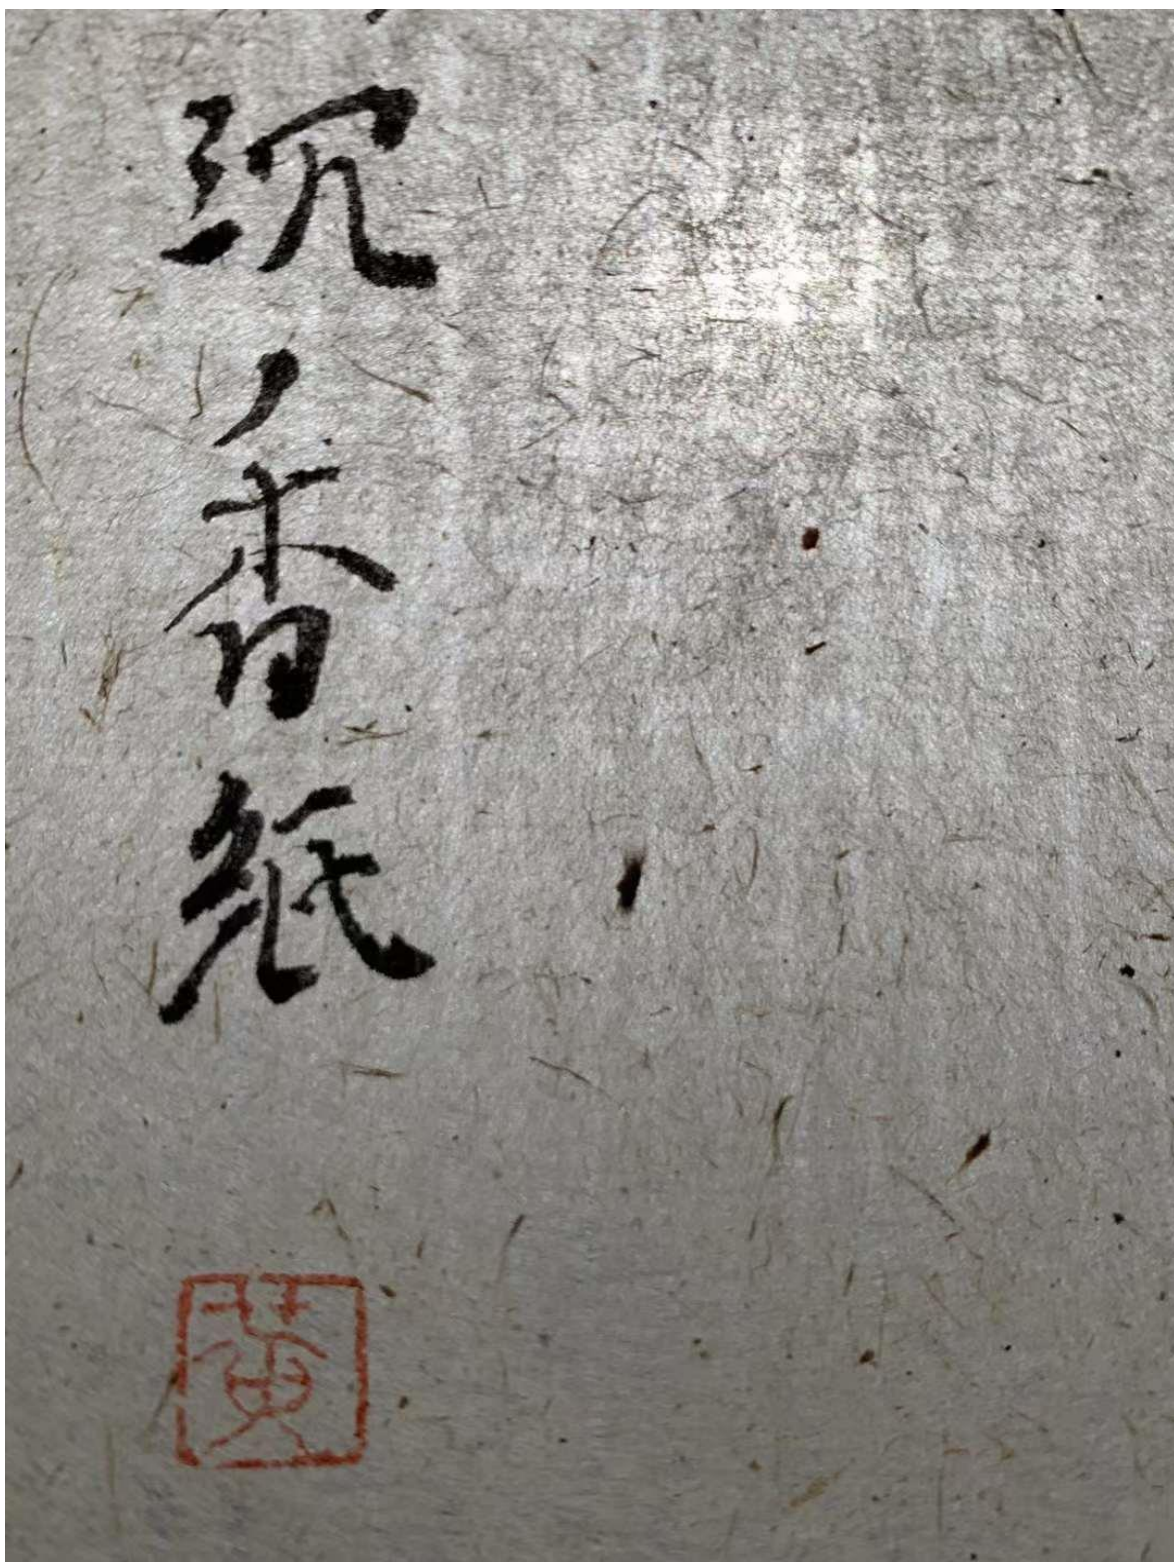 沉香紙
黄